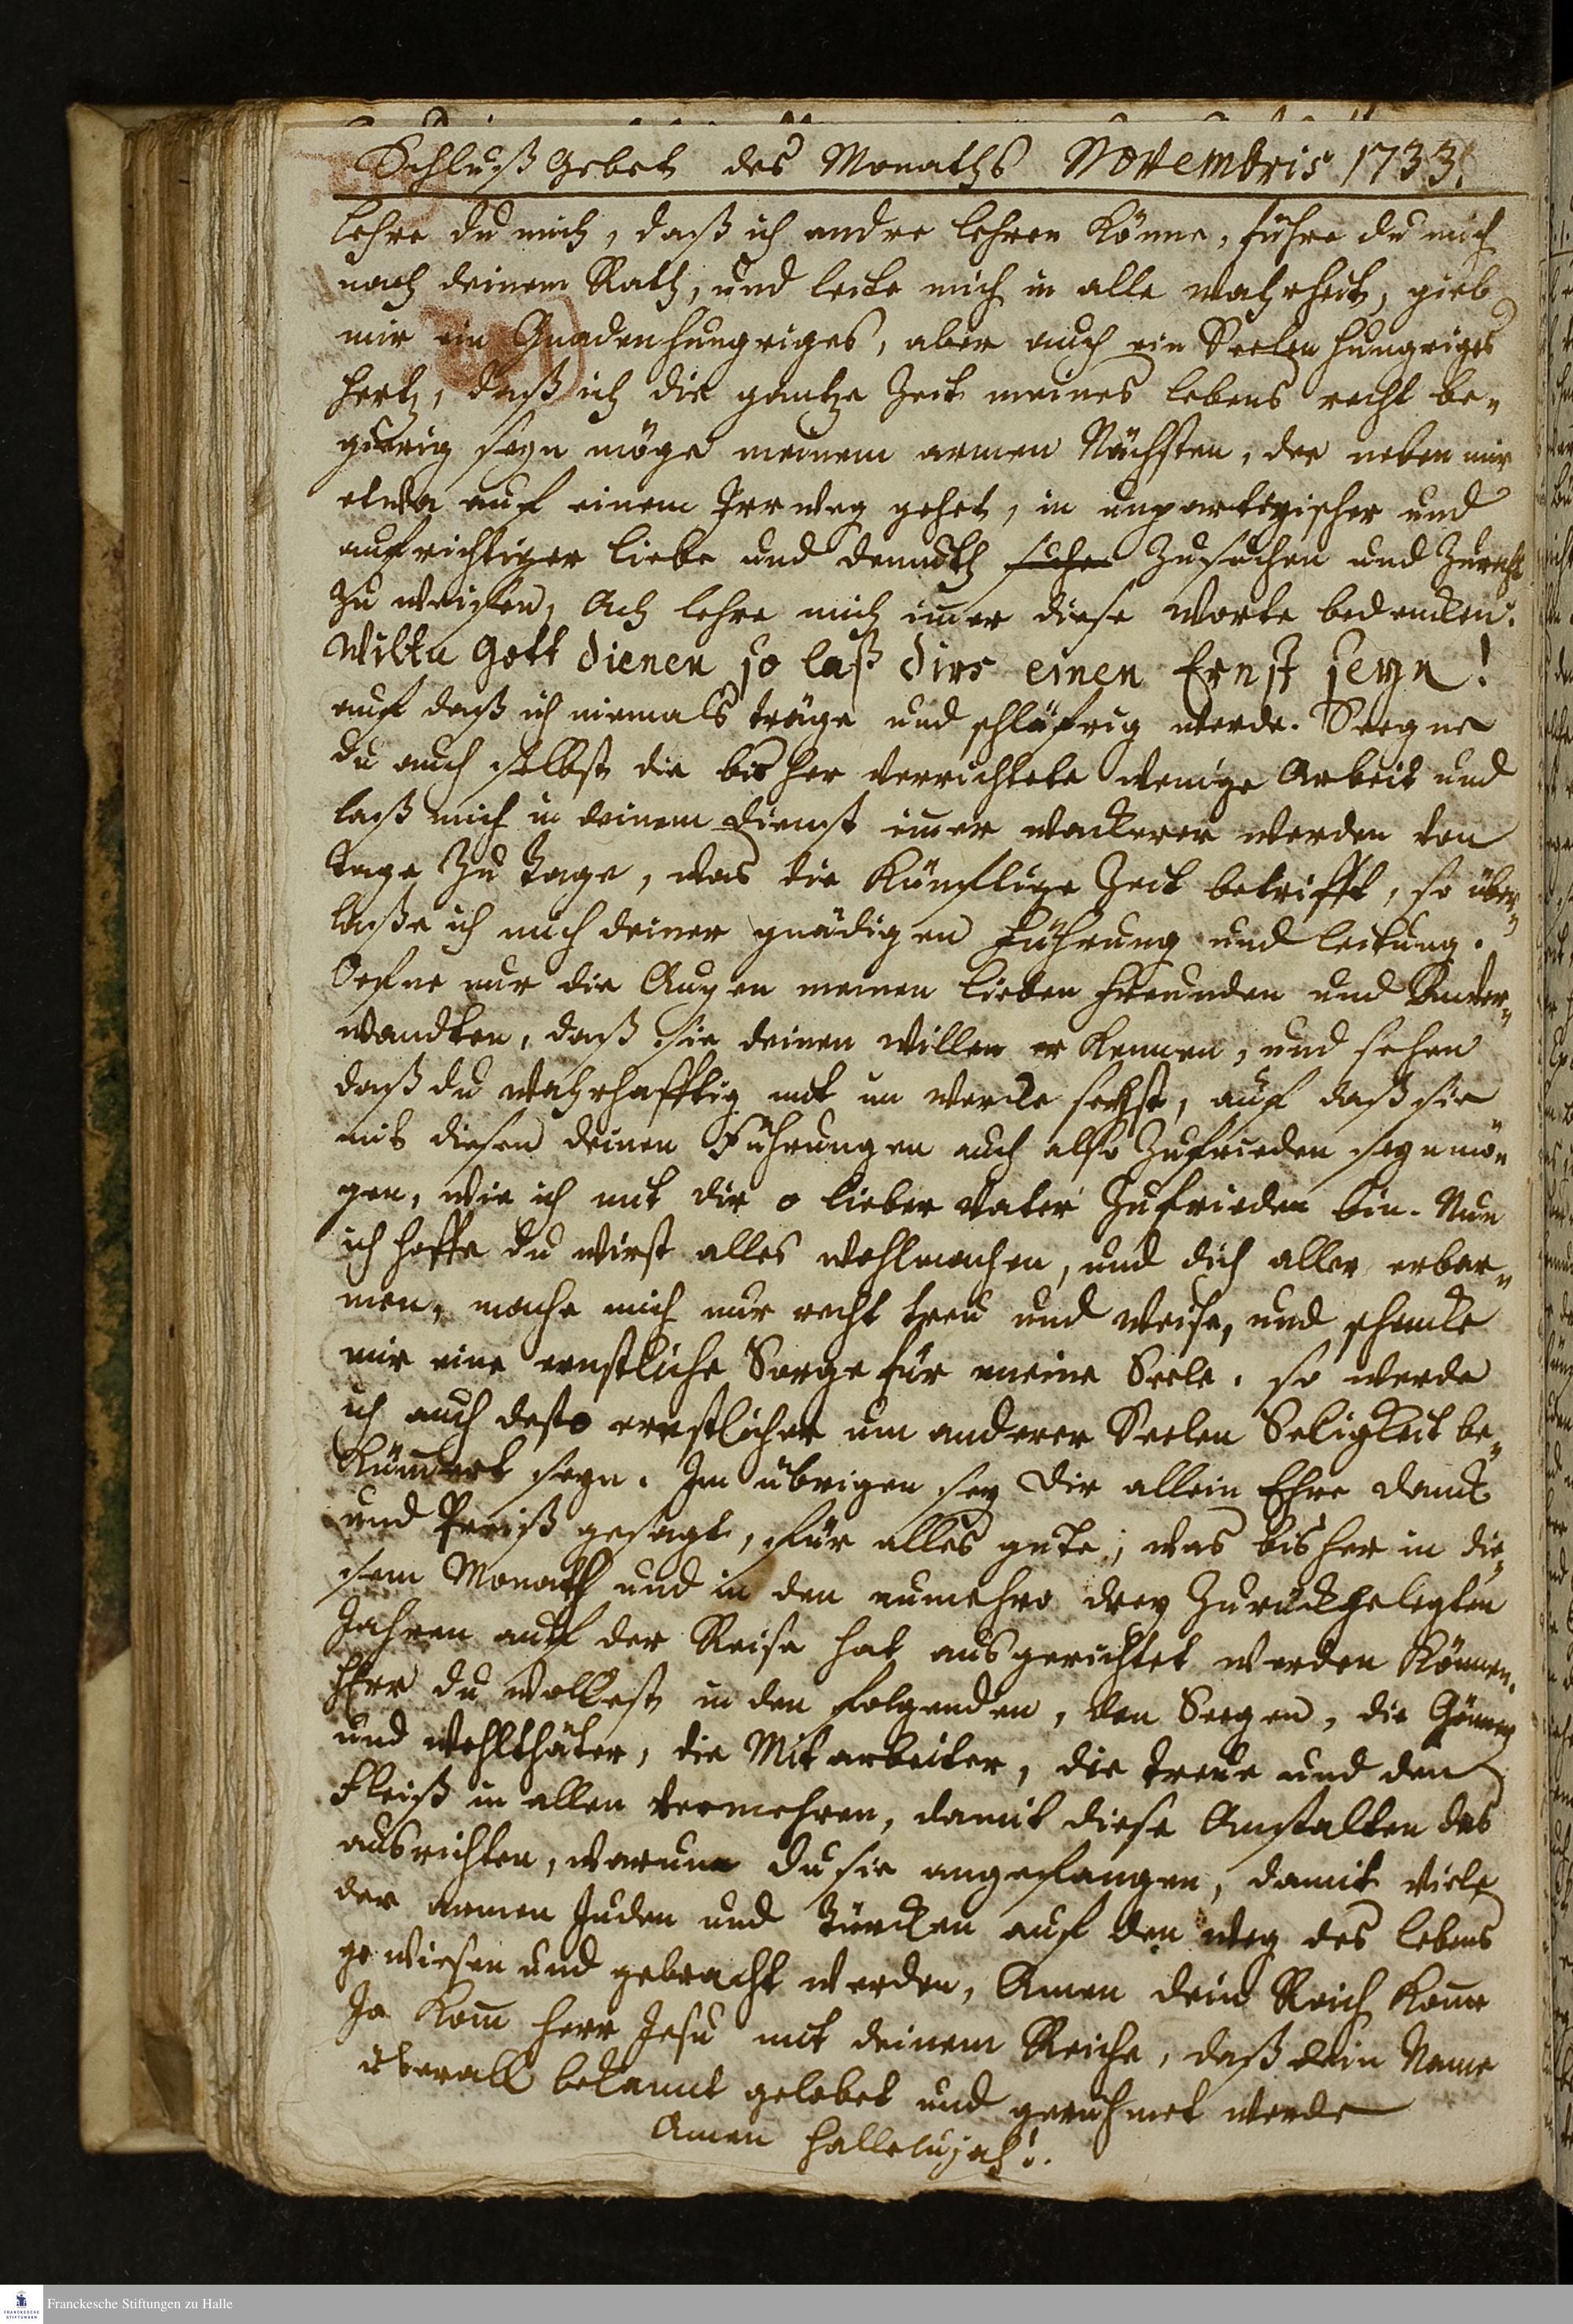 Schluß Gebet des Monaths Novembris 1733.
lehre du mich, daß ich andre lehren könne, führe du mich
nach deinem Rath, und leite mich in alle wahrheit, gieb
mir ein Gnadenhungriges, aber auch ein Seelen hungriges
Hertz, daß ich die gantze Zeit meines lebens recht be-
gierig seyn möge meinem armen Nächsten, der neben mir
etwa auf einem Irrweg gehet, in unparteyischer und
aufrichtiger liebe und demuth suchen zu suchen und zurecht
zu weisen, Ach lehre mich imer diese Worte bedencken:
Wiltu Gott dienen so laß dirs einen Ernst seyn!
auf daß ich niemals träge und schläfrig werde. Seegne
du auch selbst die bis her verrichtete wenige Arbeit und
laß mich in deinem Dienst imer wackerer werden von
tage zu tage, was die Künfftige Zeit betrifft, so über-
laße ich mich deiner gnädigen Führung und leitung.
Oefne nur die Augen meinen lieben Freunden und Anver-
wandten, daß sie deinen willen erkennen, und sehen
daß du wahrhafftig mit im Wercke seyst, auf daß sie
mit diesen deinen Führungen auch also zufrieden seyn mö-
gen, wie ich mit dir o lieber Vater zufrieden bin. Nun
ich hoffe du wirst alles wohlmachen, und dich aller erbar-
men, mache mich nur recht treu und weise, und schencke
mir eine ernstliche Sorge für meine Seele, so werde
ich auch desto ernstlicher um anderer Seelen Seligkeit be-
kümert seyn. Im übrigen sey Dir allein Ehre Danck
und Preiß gesagt, für alles gute, was bisher in die-
sem Monath und in den numehro drey zurückgelegten
Jahren auf der Reise hat ausgerichtet werden können.
HErr du wollest in den folgenden, den Seegen, die Gönner
und wohlthäter, die Mitarbeiter, die treue und den
Fleiß in allen vermehren, damit diese Anstalten das
ausrichten, warum du sie angefangen, damit viele
der armen Juden und Türcken auf den weg des lebens
gewiesen und gebracht werden, Amen dein Reich kome
Ja kom Herr Jesu mit deinem Reiche, daß dein Name
überall bekannt gelobet und gerühmet werde
Amen Hallelujah!
Franckesche Stiftungen zu Halle